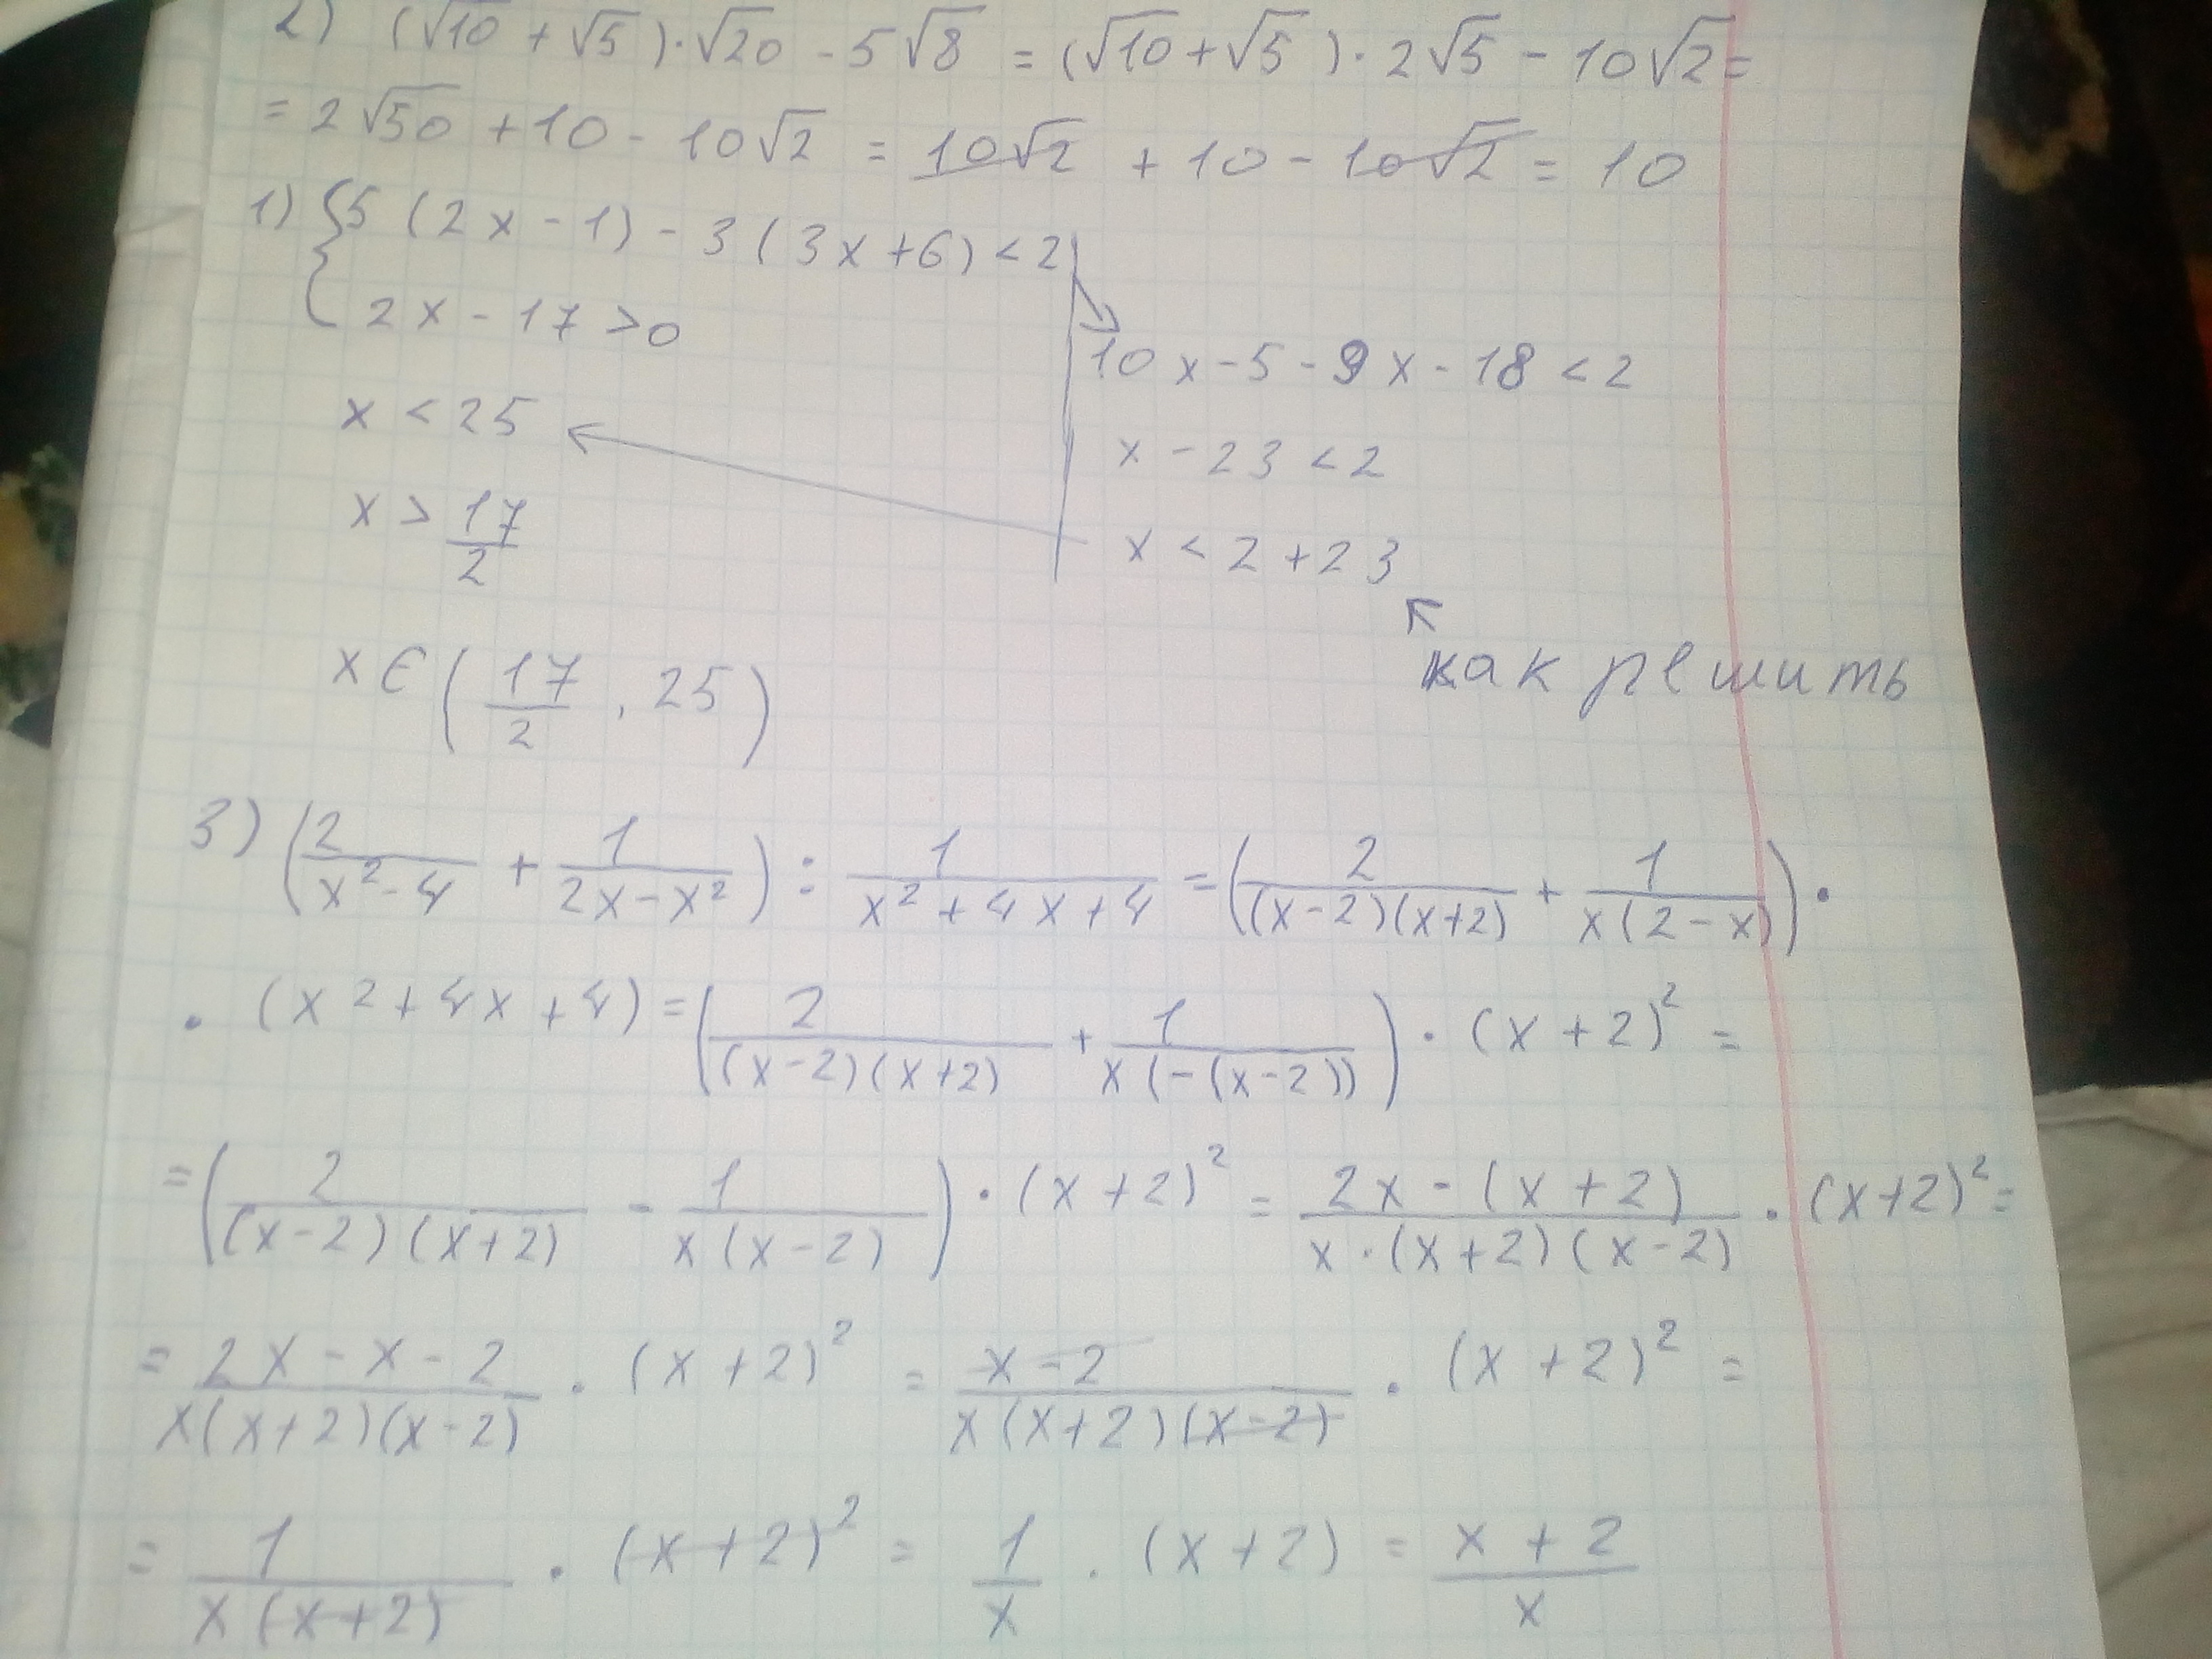 2) (√10 + √5) · √20 - 5√8 = (√10 + √5) · 2√5 - 10√2 =
= 2√50 + 10 - 10√2 = 10√2 + 10 - 10√2 = 10
1) { 5 (2x - 1) - 3 (3x + 6) < 2
2x - 17 > 0
10x - 5 - 9x - 18 < 2
x < 25
x - 23 < 2
x > 17/2
x < 2 + 23
как решить
x ∈ (17/2, 25)
3) (2/(x² - 4) + 1/(2x - x²)) : 1/(x² + 4x + 4) = (2/((x-2)(x+2)) + 1/(x(2-x))) ·
· (x² + 4x + 4) = (2/((x-2)(x+2)) + 1/(x(-(x-2)))) · (x+2)² =
= (2/((x-2)(x+2)) - 1/(x(x-2))) · (x+2)² = (2x - (x+2))/(x·(x+2)(x-2)) · (x+2)² =
= (2x - x - 2)/(x(x+2)(x-2)) · (x+2)² = (x-2)/(x(x+2)(x-2)) · (x+2)² =
= 1/(x(x+2)) · (x+2)² = 1/x · (x+2) = (x+2)/x